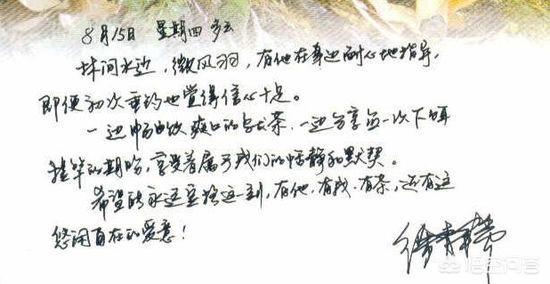 8月15日 星期四 多云
林间水边，微风习，有他在身边耐心地指导，
即便初次垂钓也觉得信心十足。
一边畅饮爽口的乌龙茶，一边分享每一次下饵
提竿的期盼，享受着属于我们的恬静和默契。
希望能永远坚持这一刻，有他，有我，有茶，还有这
悠闲自在的爱意！
悟空问答